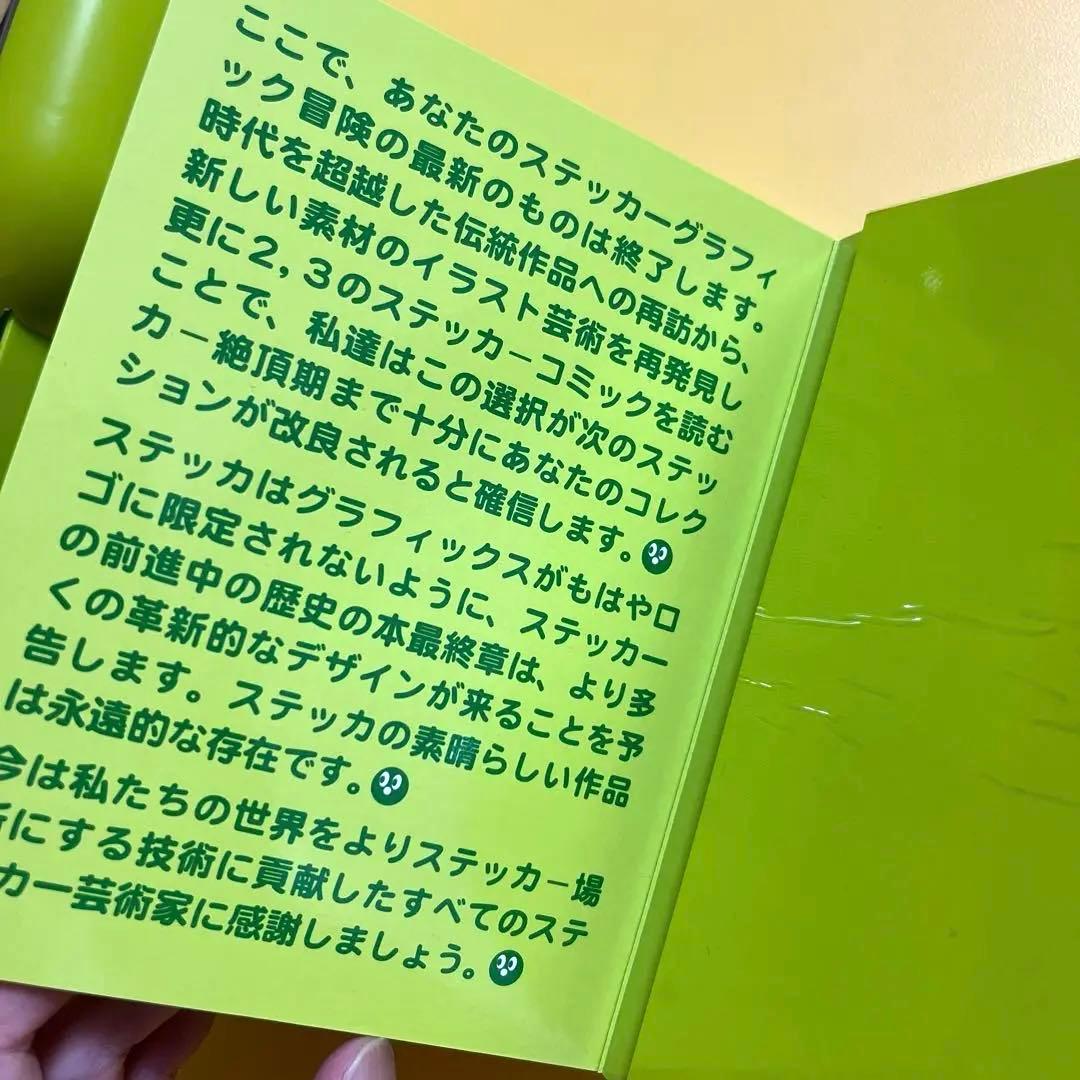 ここで、あなたのステッカーグラフィ
ック冒険の最新のものは終了します。
時代を超越した伝統作品への再訪から、
新しい素材のイラスト芸術を再発見し
更に2,3のステッカーコミックを読む
ことで、私達はこの選択が次のステッ
カー絶頂期まで十分にあなたのコレク
ションが改良されると確信します。
ステッカはグラフィックスがもはやロ
ゴに限定されないように、ステッカー
の前進中の歴史の本最終章は、より多
くの革新的なデザインが来ることを予
告します。ステッカの素晴らしい作品
は永遠的な存在です。
今は私たちの世界をよりステッカー場
所にする技術に貢献したすべてのステ
カー芸術家に感謝しましょう。